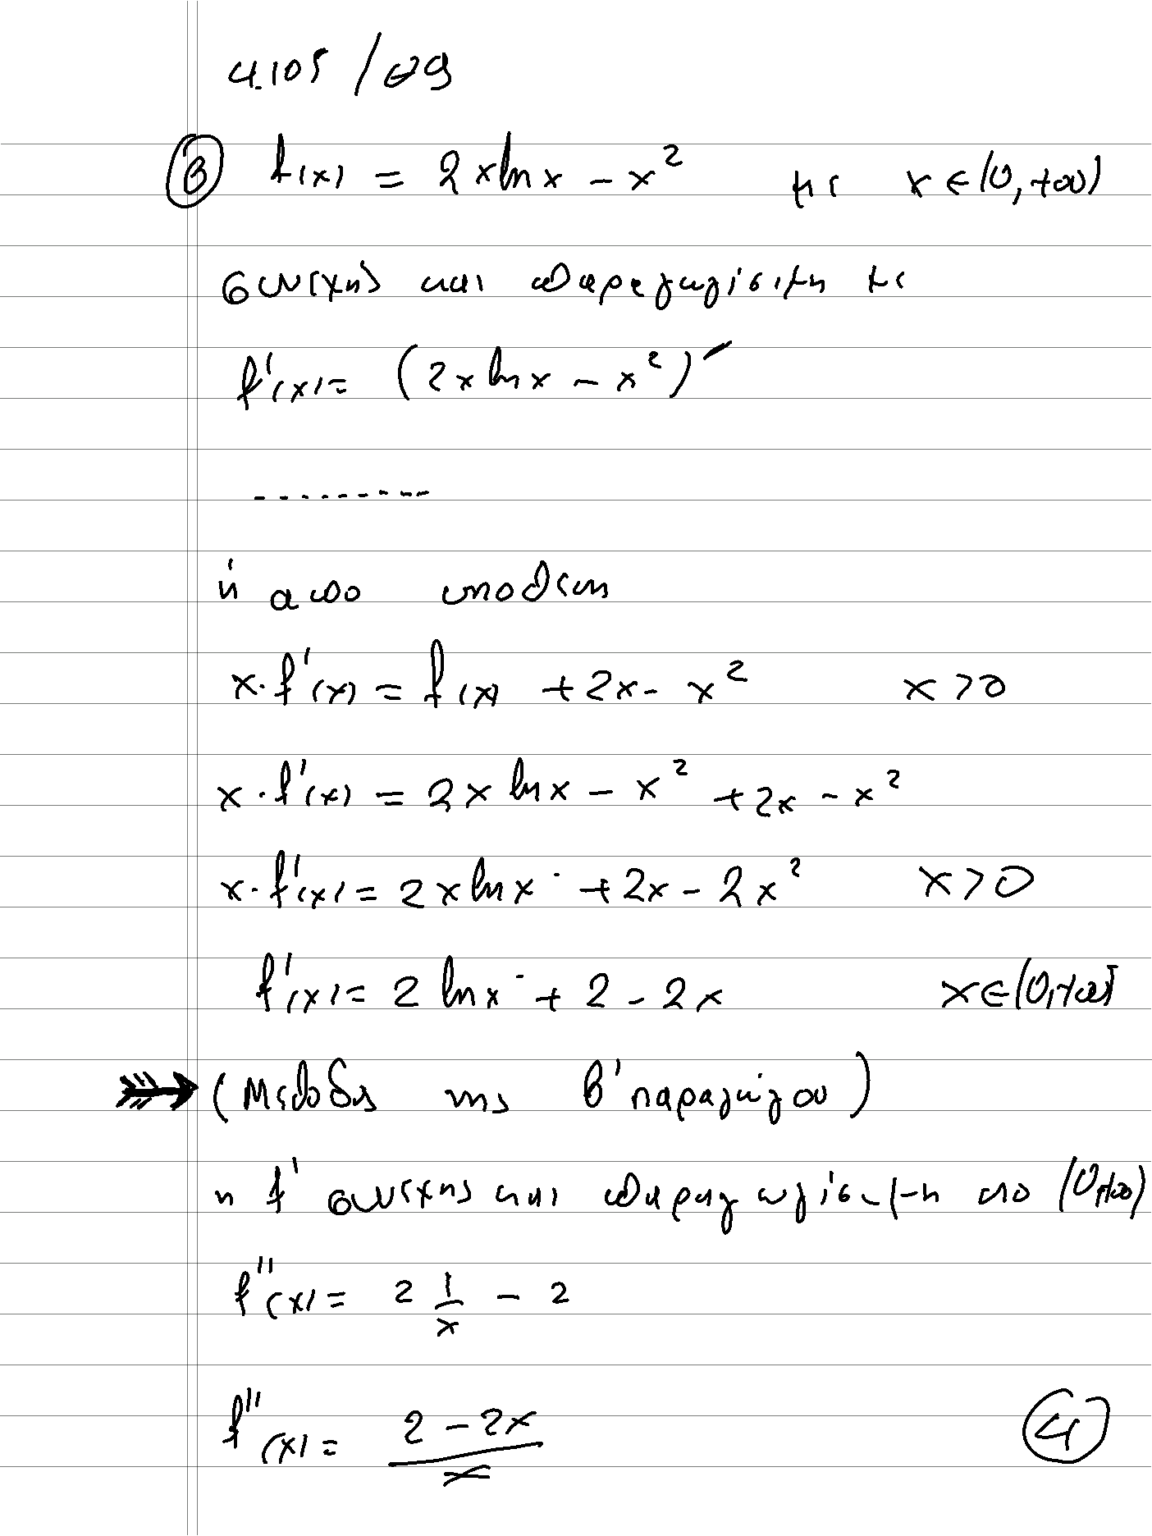 4.105 / 69
β f(x) = 2xlnx - x² με x ∈ (0, +∞)
συνεχής και παραγωγίσιμη με
f'(x) = (2xlnx - x²)'
---------
ή από υπόθεση
x·f'(x) = f(x) + 2x - x² x > 0
x·f'(x) = 2xlnx - x² + 2x - x²
x·f'(x) = 2xlnx + 2x - 2x² x > 0
f'(x) = 2lnx + 2 - 2x x ∈ (0, +∞)
(Μέθοδος της β' παραγώγου)
η f' συνεχης και παραγωγίσιμη στο (0, +∞)
f''(x) = 2 1/x - 2
f''(x) = (2 - 2x)/x
4